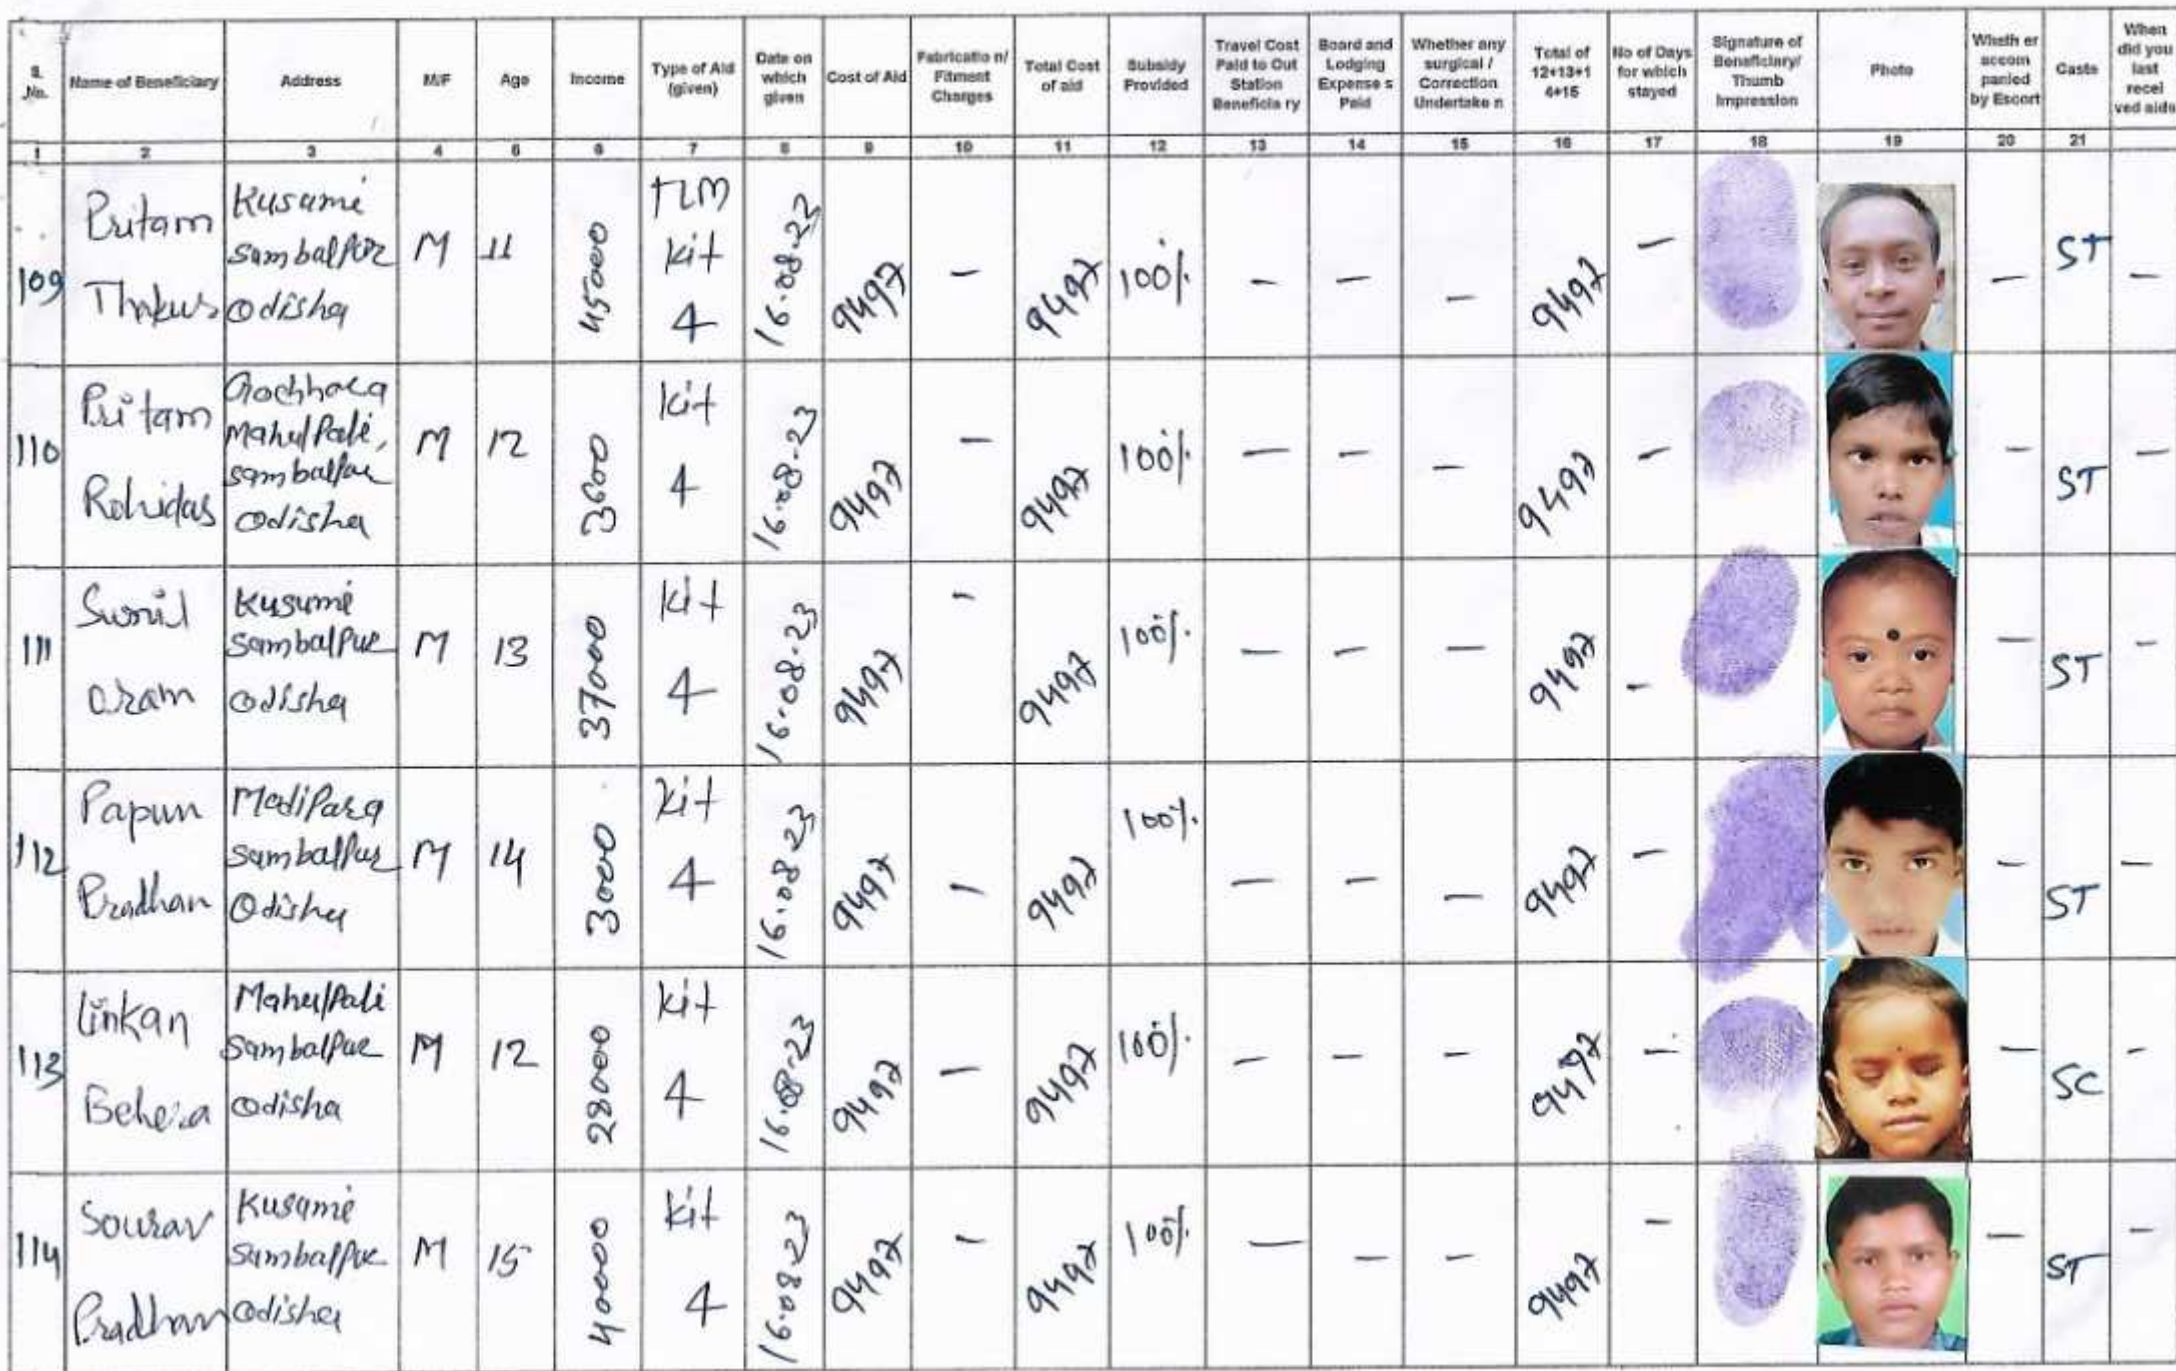 S. No. | Name of Beneficiary | Address | M/F | Age | Income | Type of Aid (given) | Date on which given | Cost of Aid | Fabricatio n/ Fitment Charges | Total Cost of aid | Subsidy Provided | Travel Cost Paid to Out Station Beneficia ry | Board and Lodging Expense s Paid | Whether any surgical / Correction Undertake n | Total of 12+13+1 4+15 | No of Days for which stayed | Signature of Beneficiary/ Thumb Impression | Photo | Wheth er accom panied by Escort | Caste | When did you last recei ved aids
1 | 2 | 3 | 4 | 5 | 6 | 7 | 8 | 9 | 10 | 11 | 12 | 13 | 14 | 15 | 16 | 17 | 18 | 19 | 20 | 21
109 | Pritam Thakur | Kusumi Sambalpur Odisha | M | 11 | 45000 | TLM Kit 4 | 9497 | – | 9497 | 100% | – | – | – | 9497 | – | – | ST | –
110 | Pritam Rohidas | Mahulpali, Sambalpur Odisha | M | 12 | 3600 | Kit 4 | 16.08.23 | 9497 | – | 9497 | 100% | – | – | – | 9497 | – | – | ST | –
111 | Sunil Oram | Kusumi Sambalpur Odisha | M | 13 | 37000 | Kit 4 | 16.08.23 | 9497 | – | 9497 | 100% | – | – | – | 9497 | – | – | ST | –
112 | Papun Pradhan | Modipara Sambalpur Odisha | M | 14 | 30000 | Kit 4 | 16.08.23 | 9497 | – | 9497 | 100% | – | – | – | 9497 | – | – | ST | –
113 | Linkan Behera | Mahulpali Sambalpur Odisha | M | 12 | 28000 | Kit 4 | 16.08.23 | 9497 | – | 9497 | 100% | – | – | – | 9497 | – | – | SC | –
114 | Sourav Pradhan | Kusumi Sambalpur Odisha | M | 15 | 40000 | Kit 4 | 16.08.23 | 9497 | – | 9497 | 100% | – | – | – | 9497 | – | – | ST | –